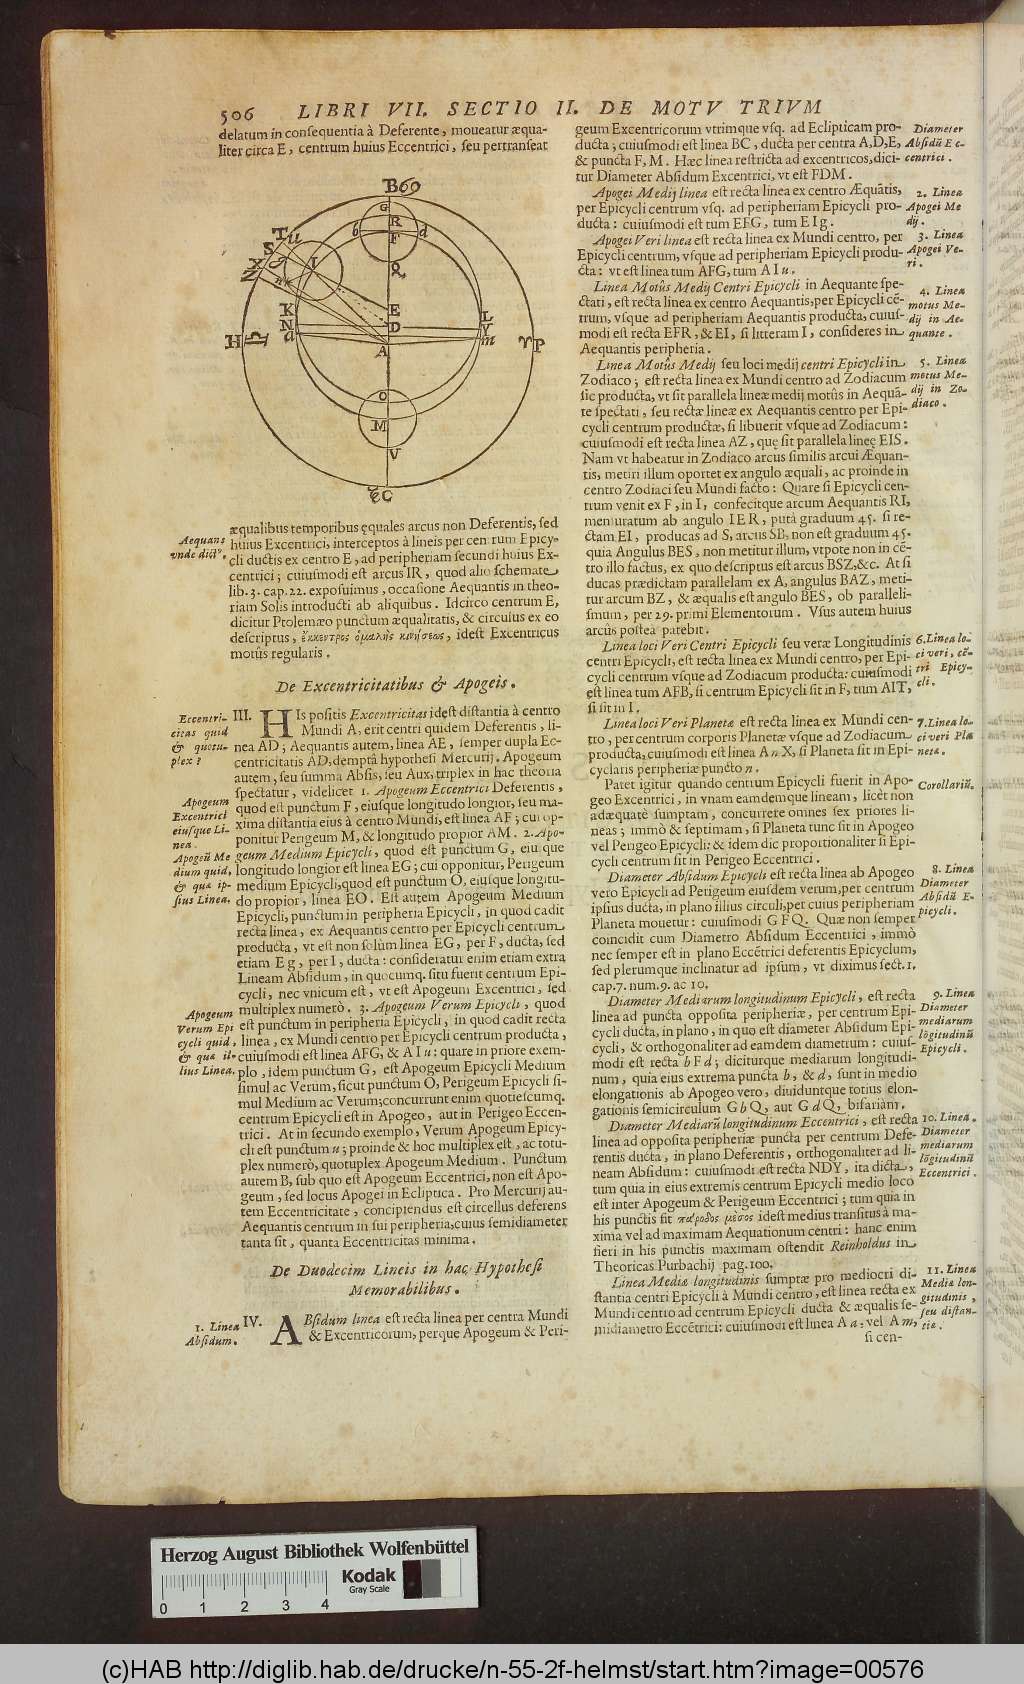 506 LIBRI VII. SECTIO II. DE MOTV TRIVM
delatum in consequentia à Deferente, moueatur æqua-
liter circa E, centrum huius Eccentrici, seu pertranseat
B69
G
R
b d
F
T u
S
X g I
Z n
E
K L
N D Y
a m
A
H ♎ ♈ P
O
M
V
C
æqualibus temporibus ęquales arcus non Deferentis, sed
Aequans
vnde dict⁹.
huius Excentrici, interceptos à lineis per cen rum Epicy-
cli ductis ex centro E, ad peripheriam secundi huius Ex-
centrici; cuiusmodi est arcus IR, quod alio schemate
lib. 3. cap. 22. exposuimus, occasione Aequantis in theo-
riam Solis introducti ab aliquibus. Idcirco centrum E,
dicitur Ptolemæo punctum æqualitatis, & circulus ex eo
descriptus, ἔκκεντρος ὁμαλῆς κινήσεως, idest Excentricus
motûs regularis.
De Excentricitatibus & Apogeis.
Eccentri-
citas quid
& quotu-
plex?
III. HIs positis Excentricitas idest distantia à centro
Mundi A, erit centri quidem Deferentis, li-
nea AD; Aequantis autem, linea AE, semper dupla Ec-
centricitatis AD, demptâ hypothesi Mercurij. Apogeum
autem, seu summa Absis, seu Aux, triplex in hac theoria
spectatur, videlicet 1. Apogeum Eccentrici Deferentis,
Apogeum
Excentrici
eiusque Li-
nea.
quod est punctum F, eiusque longitudo longior, seu ma-
xima distantia eius à centro Mundi, est linea AF; cui op-
ponitur Perigeum M, & longitudo propior AM. 2. Apo-
Apogeū Me
dium quid,
& qua ip-
sius Linea.
geum Medium Epicycli, quod est punctum G, eiu que
longitudo longior est linea EG; cui opponitur, Perigeum
medium Epicycli, quod est punctum O, eiusque longitu-
do propior, linea EO. Est autem Apogeum Medium
Epicycli, punctum in peripheria Epicycli, in quod cadit
recta linea, ex Aequantis centro per Epicycli centrum
producta, vt est non solùm linea EG, per F, ducta, sed
etiam E g, per I, ducta: consideratur enim etiam extra
Lineam Absidum, in quocumq. situ fuerit centrum Epi-
cycli, nec vnicum est, vt est Apogeum Excentrici, sed
multiplex numerò. 3. Apogeum Verum Epicycli, quod
Apogeum
Verum Epi
cycli quid,
& qua il-
lius Linea.
est punctum in peripheria Epicycli, in quod cadit recta
linea, ex Mundi centro per Epicycli centrum producta,
cuiusmodi est linea AFG, & A I u: quare in priore exem-
plo, idem punctum G, est Apogeum Epicycli Medium
simul ac Verum, sicut punctum O, Perigeum Epicycli si-
mul Medium ac Verum; concurrunt enim quotiescumq.
centrum Epicycli est in Apogeo, aut in Perigeo Eccen-
trici. At in secundo exemplo, Verum Apogeum Epicy-
cli est punctum u; proinde & hoc multiplex est, ac totu-
plex numerò, quotuplex Apogeum Medium. Punctum
autem B, sub quo est Apogeum Eccentrici, non est Apo-
geum, sed locus Apogei in Ecliptica. Pro Mercurij au-
tem Eccentricitate, concipiendus est circellus deferens
Aequantis centrum in sui peripheria, cuius semidiameter
tanta sit, quanta Eccentricitas minima.
De Duodecim Lineis in hac Hypothesi
Memorabilibus.
1. Linea
Absidum.
IV. ABsidum linea est recta linea per centra Mundi
& Excentricorum, perque Apogeum & Peri-
geum Excentricorum vtrimque vsq. ad Eclipticam pro-
ducta; cuiusmodi est linea BC, ducta per centra A, D, E,
& puncta F, M. Hæc linea restricta ad excentricos, dici-
tur Diameter Absidum Excentrici, vt est FDM.
Diameter
Absidū Ec-
centrici.
Apogei Medij linea est recta linea ex centro Æquātis,
per Epicycli centrum vsq. ad peripheriam Epicycli pro-
ducta: cuiusmodi est tum EFG, tum E I g.
2. Linea
Apogei Me
dij.
Apogei Veri linea est recta linea ex Mundi centro, per
Epicycli centrum, vsque ad peripheriam Epicycli produ-
cta: vt est linea tum AFG, tum A I u.
3. Linea
Apogei Ve-
ri.
Linea Motûs Medij Centri Epicycli in Aequante spe-
ctati, est recta linea ex centro Aequantis, per Epicycli cē-
trum, vsque ad peripheriam Aequantis producta, cuius-
modi est recta EFR, & EI, si litteram I, consideres in
Aequantis peripheria.
4. Linea
motus Me-
dij in Ae-
quante.
Linea Motûs Medij seu loci medij centri Epicycli in
Zodiaco; est recta linea ex Mundi centro ad Zodiacum
sic producta, vt sit parallela lineæ medij motûs in Aequā-
te spectati, seu rectæ lineæ ex Aequantis centro per Epi-
cycli centrum productæ, si libuerit vsque ad Zodiacum:
cuiusmodi est recta linea AZ, quę sit parallela lineę EIS.
Nam vt habeatur in Zodiaco arcus similis arcui Æquan-
tis, metiri illum oportet ex angulo æquali, ac proinde in
centro Zodiaci seu Mundi facto: Quare si Epicycli cen-
trum venit ex F, in I, confecitque arcum Aequantis RI,
mensuratum ab angulo IER, putà graduum 45. si re-
ctam EI, producas ad S, arcus SB, non est graduum 45.
quia Angulus BES, non metitur illum, vtpote non in cē-
tro illo factus, ex quo descriptus est arcus BSZ, &c. At si
ducas prædictam parallelam ex A, angulus BAZ, meti-
tur arcum BZ, & æqualis est angulo BES, ob paralleli-
smum, per 29. primi Elementorum. Vsus autem huius
arcûs postea patebit.
5. Linea
motus Me-
dij in Zo-
diaco.
Linea loci Veri Centri Epicycli seu veræ Longitudinis
centri Epicycli, est recta linea ex Mundi centro, per Epi-
cycli centrum vsque ad Zodiacum producta: cuiusmodi
est linea tum AFB, si centrum Epicycli sit in F, tum AIT,
si sit in I.
6. Linea lo-
ci veri, cē-
tri Epicy-
cli.
Linea loci Veri Planetæ est recta linea ex Mundi cen-
tro, per centrum corporis Planetæ vsque ad Zodiacum
producta, cuiusmodi est linea A n X, si Planeta sit in Epi-
cyclaris peripheriæ puncto n.
7. Linea lo-
ci veri Pla
neta.
Patet igitur quando centrum Epicycli fuerit in Apo-
geo Excentrici, in vnam eamdemque lineam, licèt non
adæquatè sumptam, concurrere omnes sex priores li-
neas; immò & septimam, si Planeta tunc sit in Apogeo
vel Perigeo Epicycli: & idem dic proportionaliter si Epi-
cycli centrum sit in Perigeo Eccentrici.
Corollariū.
Diameter Absidum Epicycli est recta linea ab Apogeo
vero Epicycli ad Perigeum eiusdem verum, per centrum
ipsius ducta, in plano illius circuli, per cuius peripheriam
Planeta mouetur: cuiusmodi G F Q. Quæ non semper
coincidit cum Diametro Absidum Eccentrici, immò
nec semper est in plano Eccētrici deferentis Epicyclum,
sed plerumque inclinatur ad ipsum, vt diximus sect. 1.
cap. 7. num. 9. ac 10.
8. Linea
Diameter
Absidū E-
picycli.
Diameter Mediarum longitudinum Epicycli, est recta
linea ad puncta opposita peripheriæ, per centrum Epi-
cycli ducta, in plano, in quo est diameter Absidum Epi-
cycli, & orthogonaliter ad eamdem diametrum: cuius-
modi est recta b F d; diciturque mediarum longitudi-
num, quia eius extrema puncta b, & d, sunt in medio
elongationis ab Apogeo vero, diuiduntque totius elon-
gationis semicirculum G b Q, aut G d Q, bifariàm.
9. Linea
Diameter
mediarum
lōgitudinū
Epicycli.
Diameter Mediarū longitudinum Eccentrici, est recta
linea ad opposita peripheriæ puncta per centrum Defe-
rentis ducta, in plano Deferentis, orthogonaliter ad li-
neam Absidum: cuiusmodi est recta NDY, ita dicta,
tum quia in eius extremis centrum Epicycli medio loco
est inter Apogeum & Perigeum Eccentrici; tum quia in
his punctis fit πάροδος μέσος idest medius transitus à ma-
xima vel ad maximam Aequationum centri: hanc enim
fieri in his punctis maximam ostendit Reinholdus in
Theoricas Purbachij pag. 100.
10. Linea.
Diameter
mediarum
lōgitudinū
Eccentrici.
Linea Mediæ longitudinis sumptæ pro mediocri di-
stantia centri Epicycli à Mundi centro, est linea recta ex
Mundi centro ad centrum Epicycli ducta & æqualis se-
midiametro Eccētrici: cuiusmodi est linea A a: vel A m,
11. Linea
Media lon-
gitudinis,
seu distan-
tia.
si cen-
Herzog August Bibliothek Wolfenbüttel
Kodak
Gray Scale
0 1 2 3 4
(c)HAB http://diglib.hab.de/drucke/n-55-2f-helmst/start.htm?image=00576